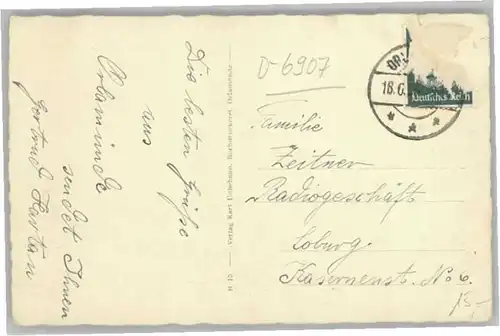 Die besten Grüße
aus
Orlamünde
sendet Ihnen
Gertrud Hartan
H 15 — Verlag Karl Dünebann, Orlamünde
D-6907
OR
18.6.
Deutsches Reich
Familie
Zeitner
Radiogeschäft
Coburg.
Kasernenstr. No 6.
15,-